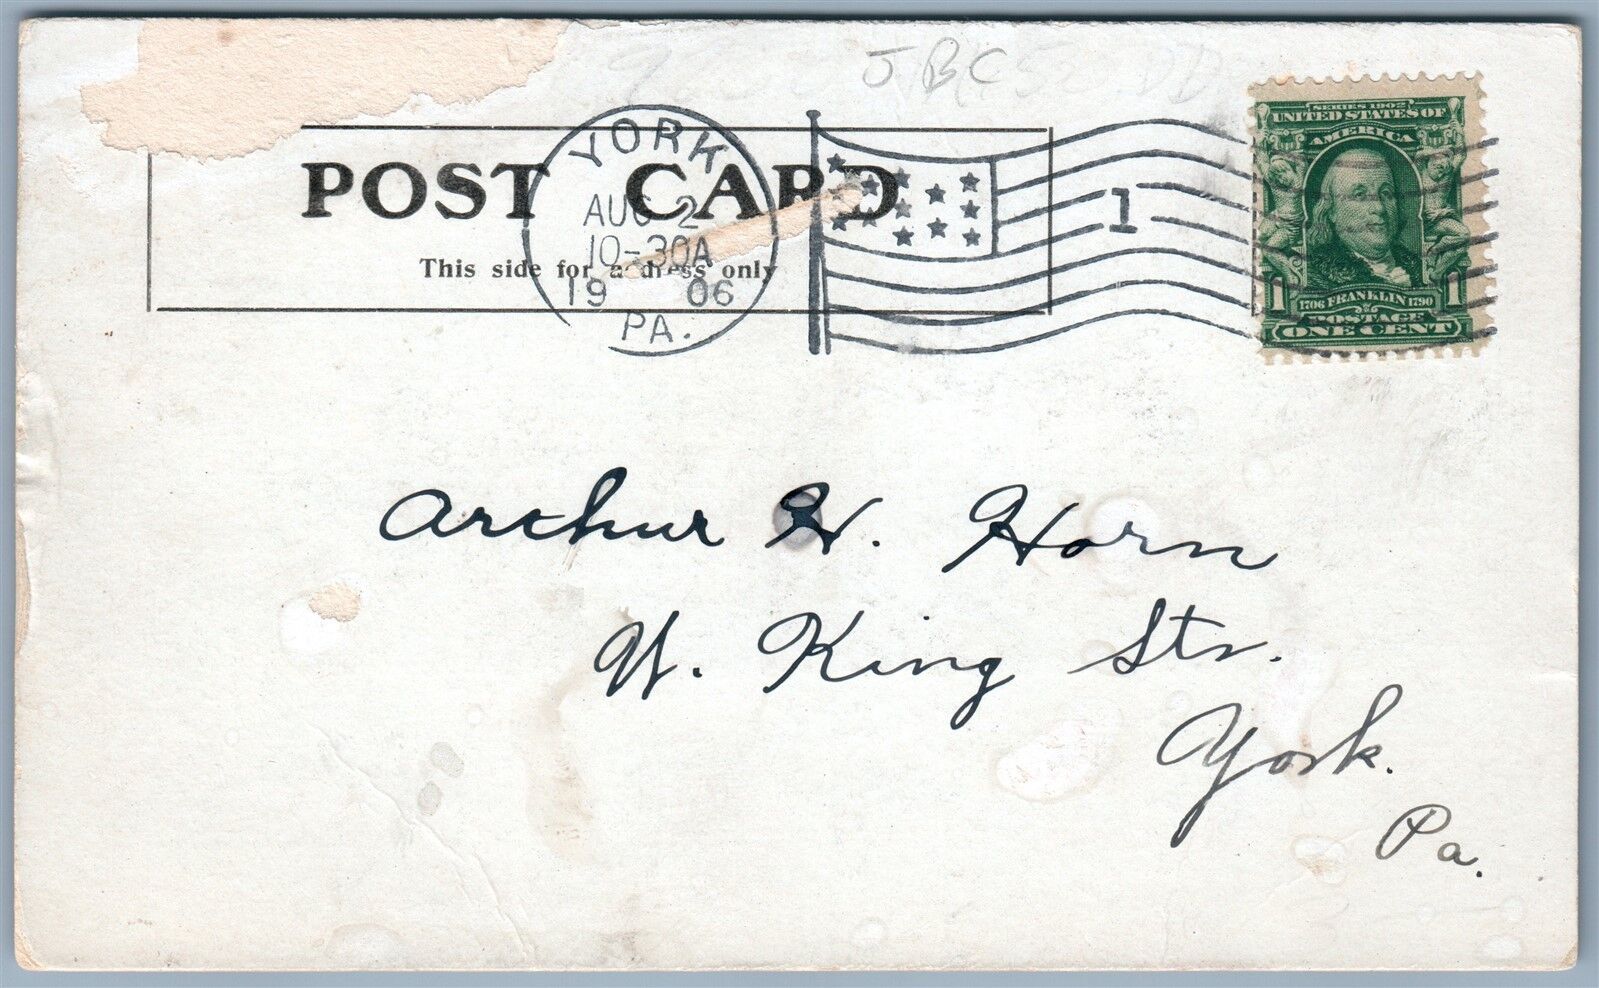 J B C
POST CARD
This side for address only
YORK
AUG 2
10-30A
19 06
PA.
1
SERIES 1902
UNITED STATES OF
AMERICA
1 1706 FRANKLIN 1790 1
POSTAGE
ONE CENT
Arthur W. Horn
W. King Str.
York.
Pa.